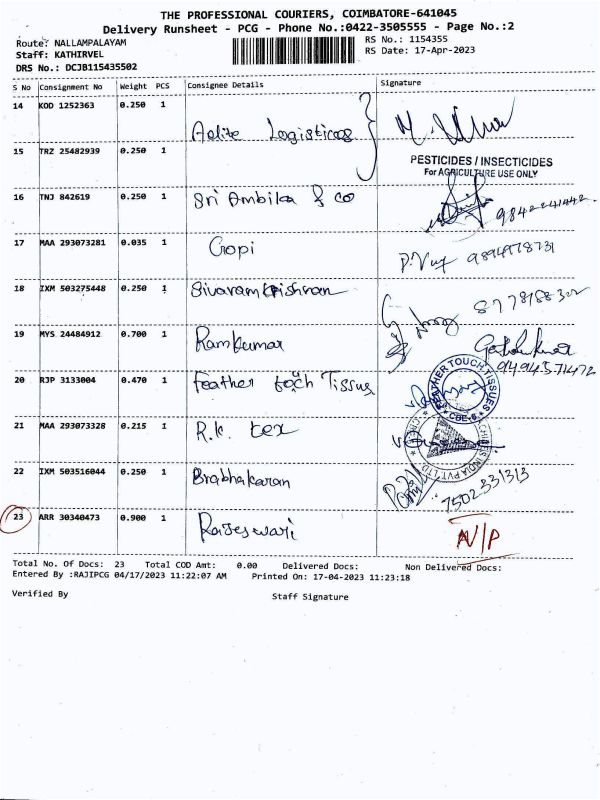 THE PROFESSIONAL COURIERS, COIMBATORE-641045
Delivery Runsheet - PCG - Phone No.:0422-3505555 - Page No.:2
Route: NALLAMPALAYAM RS No.: 1154355
Staff: KATHIRVEL RS Date: 17-Apr-2023
DRS No.: DCJB115435502
S No Consignment No Weight PCS Consignee Details Signature
14 KOD 1252363 0.250 1
Aelite Logisticas
15 TRZ 25482939 0.250 1
PESTICIDES / INSECTICIDES
For AGRICULTURE USE ONLY
16 TNJ 842619 0.250 1 Sri Ambika & co
17 MAA 293073281 0.035 1 Gopi 9894978731
18 IXM 503275448 0.250 1 Sivaramkrishnan
19 MYS 24484912 0.700 1 Ramkumar
9494571472
20 RJP 3133004 0.470 1 Feather toch Tissus
FEATHER TOUCH TISSUES
CBE-6
21 MAA 293073328 0.215 1 R.K. tex
INDIA PVT LTD
22 IXM 503516044 0.250 1 Brabhakaran 7502331313
23 ARR 30340473 0.900 1 Rajeswari N/P
Total No. Of Docs: 23 Total COD Amt: 0.00 Delivered Docs: Non Delivered Docs:
Entered By :RAJIPCG 04/17/2023 11:22:07 AM Printed On: 17-04-2023 11:23:18
Verified By Staff Signature